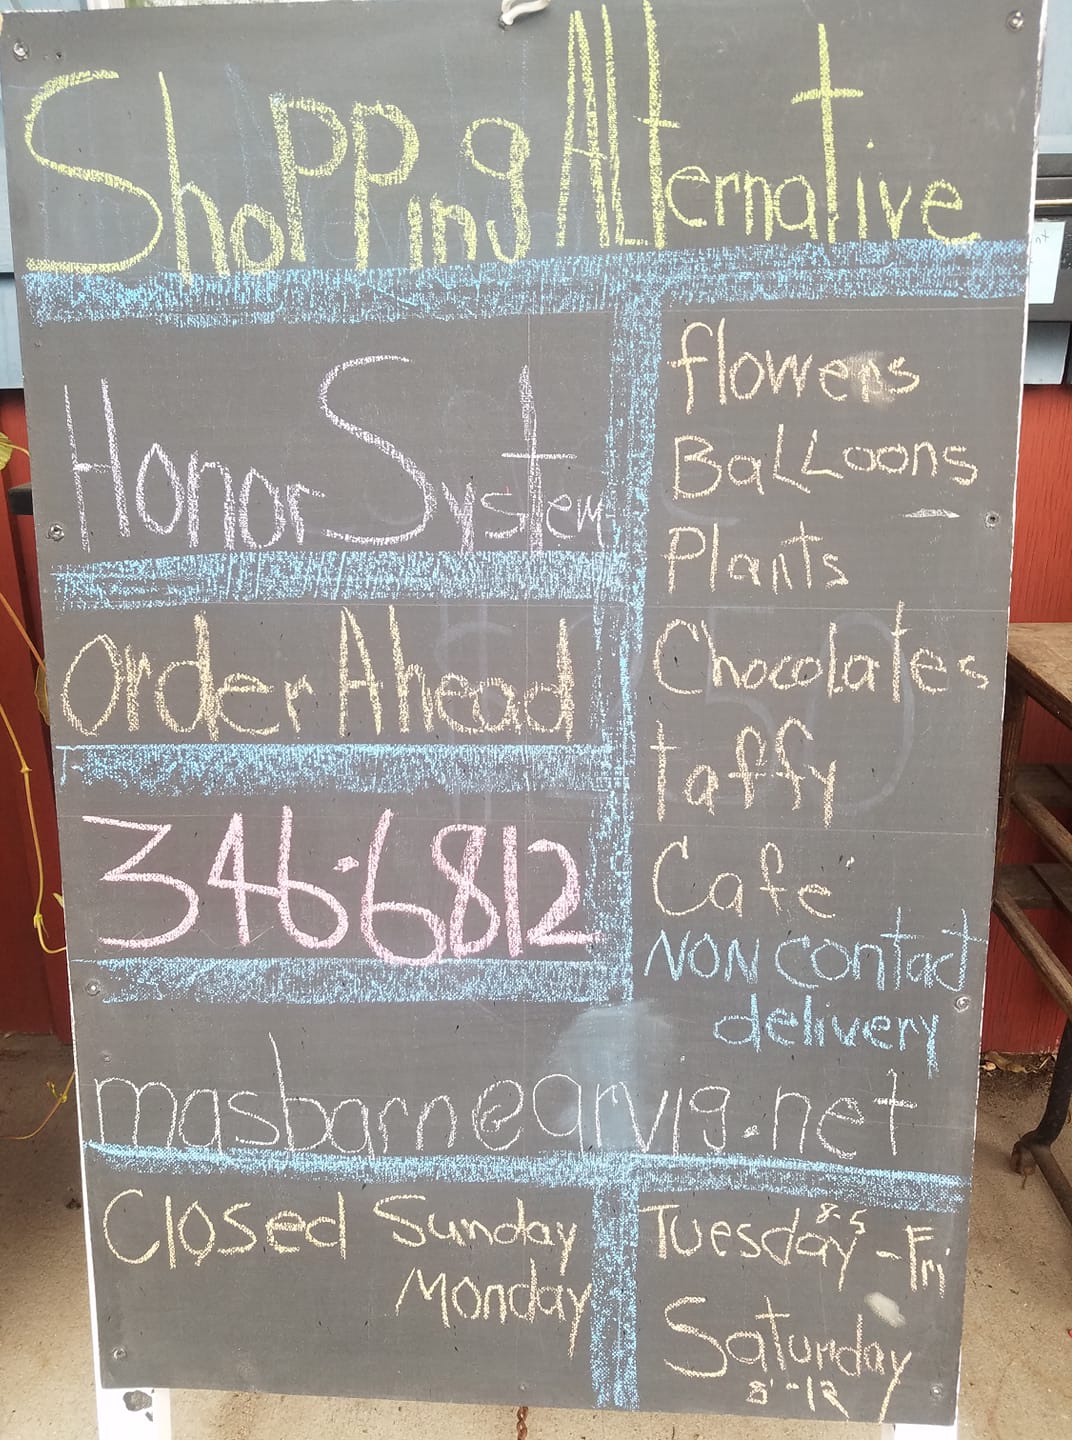 Shopping Alternative
Honor System
Order Ahead
346-6812
flowers
Balloons
Plants
Chocolates
taffy
Cafe
NON contact
delivery
masbarn@arvig.net
Closed Sunday
Monday
Tuesday - Fri
8-5
Saturday
8-12